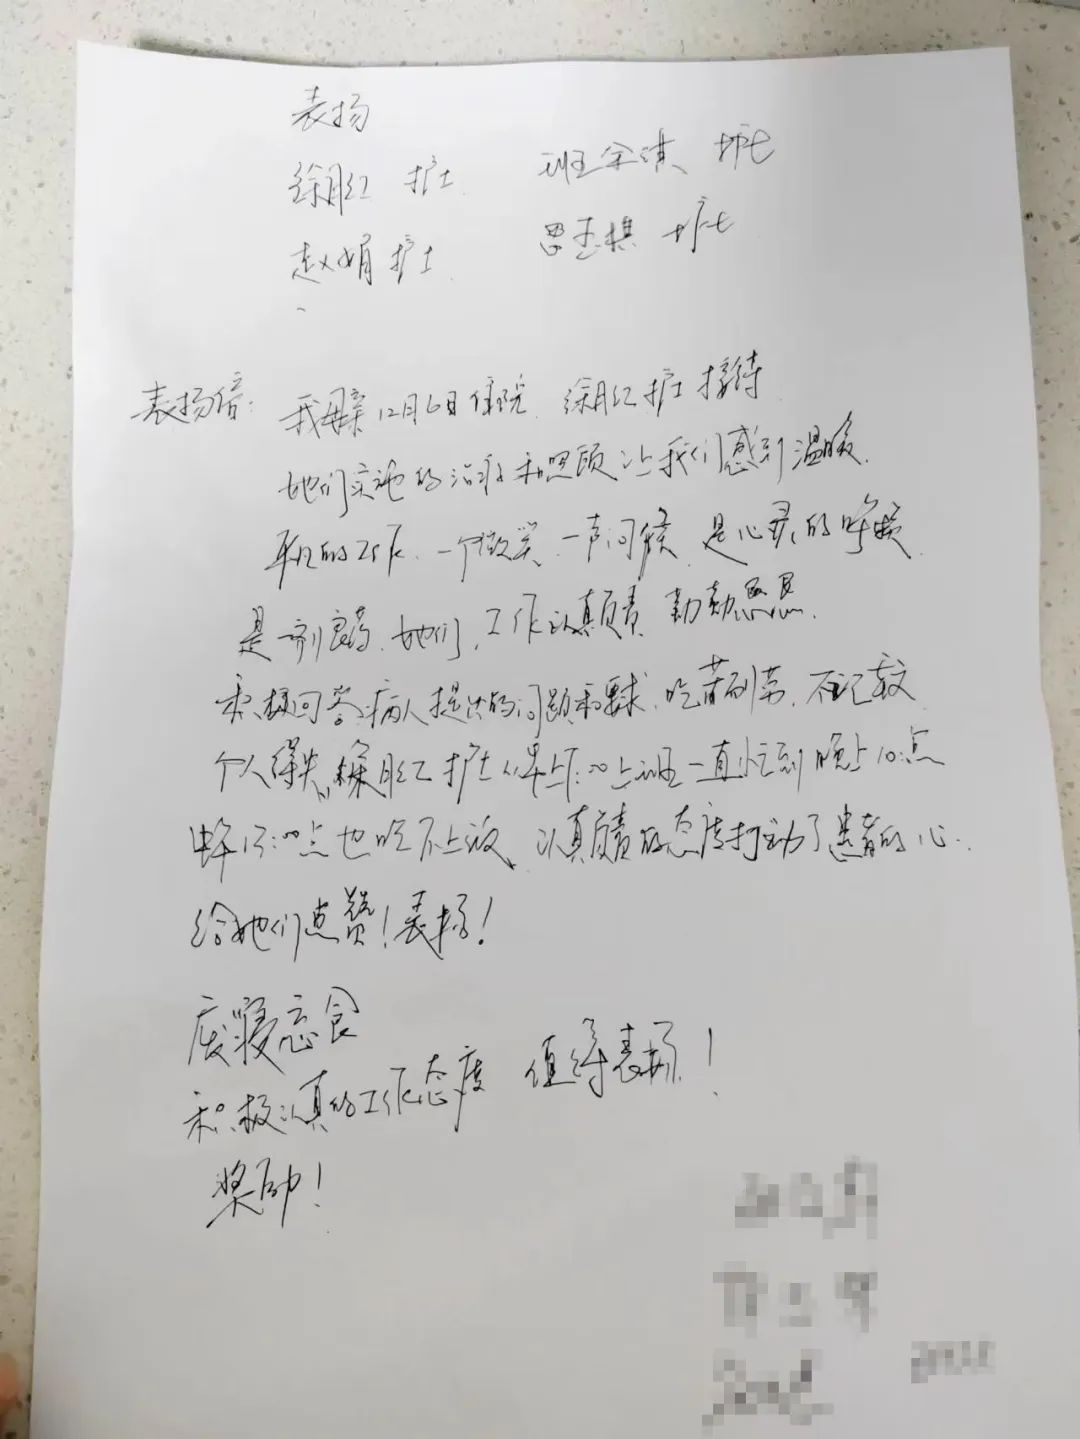 表扬
徐月红 护士 班全淇 护士
赵娟 护士 思玉棋 护士
表扬信: 我母亲12月6日住院 徐月红护士接待
她们实施的治疗和照顾让我们感到温暖.
平凡的工作、一个微笑、一声问候 是心灵的呼唤
是一剂良药. 她们,工作认真负责 勤勤恳恳.
积极回答病人提出的问题和要求. 吃苦耐劳、不计较
个人得失. 徐月红护士从早上7:00上班一直忙到晚上10:点
中午13:00点也吃不上饭、认真负责的态度打动了患者的心.
给她们点赞!表扬!
废寝忘食
积极认真的工作态度 值得表扬!
奖励!